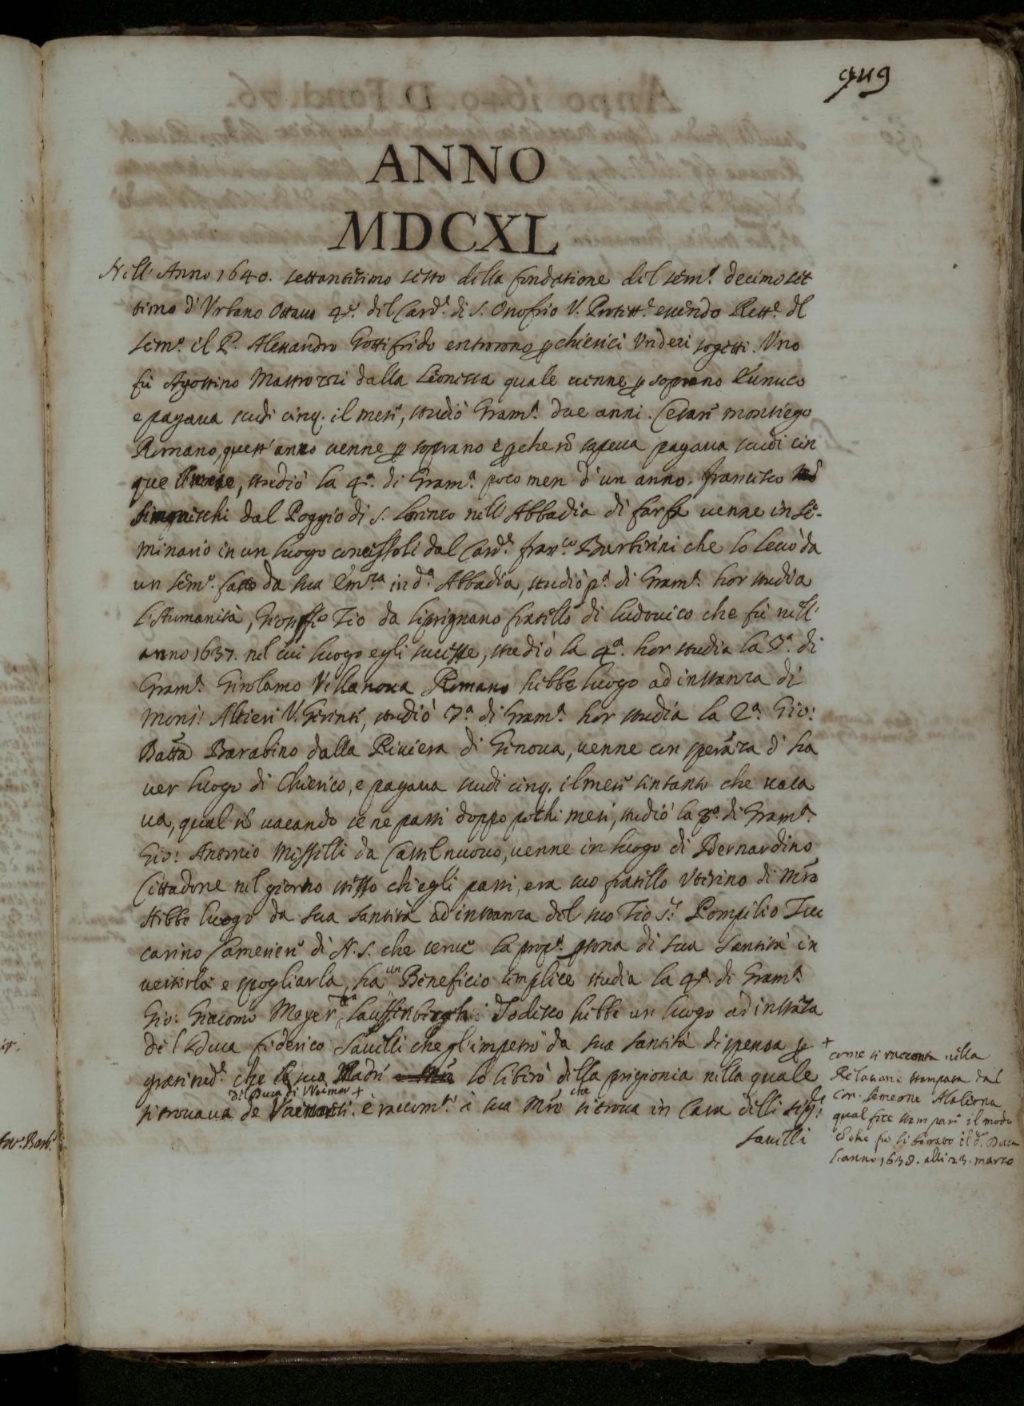 949
ANNO
MDCXL
Nell' Anno 1640. settantesimo sesto della fondatione del sem.º decimoset
timo d'Urbano Ottavo 4.º del Card.e di S. Onofrio V. Protett.e essendo Rett.e del
sem.º il P. Alessandro Gottifredo entrorono p chierici Undeci sogetti. Uno
fù Agostino Mattiozzi dalla Leonessa quale venne p soprano Eunuco
e pagava scudi cinq. il mese, studiò Gram.ª due anni. Cesare Montiego
Romano, quest'anno venne p soprano e pche nõ sapeva pagava scudi cin
que il mese, studiò la 4.ª di Gram.ª poco men d'un anno. francesco
dal Poggio di S. Lorenzo nell'Abbadia di farfa venne in Se-
minario in un luogo concessoli dal Card.e fran.co Barberini che lo levò da
un sem.º fatto da sua Em.za in d.ª Abbadia, studiò p.ª di Gram.ª hor studia
l'Humanità, Tio da Ciprignano fratello di Ludovico che fù nell'
anno 1637. nel cui luogo egli successe, studiò la 4.ª hor studia la 3.ª di
Gram.ª Girolamo Villanova Romano hebbe luogo ad instanza di
Mons.r Altieri V. Gerente, studiò 3.ª di Gram.ª hor studia la 2.ª Gio:
Batta Barabino dalla Riviera di Genova, venne con speranza d'ha
ver luogo di Chierico, e pagava scudi cinq. il mese sintanto che vaca
va, qual nõ vacando se ne partì doppo pochi mesi, studiò la 3.ª di Gram.ª
Gio: Antonio Missilli da Castelnuovo, venne in luogo di Bernardino
Cittadone nel giorno stesso ch'egli partì, era suo fratello Uterino di Mrẽ
Hebbe luogo da Sua Santità ad instanza del suo Tio S.r Pompilio Zuc
carino Camerier.e di N.S. che serve la prop.ª psona di Sua Santità in
vestirla e spogliarla, ha un Beneficio simplice studia la 4.ª di Gram.ª
Gio: Giacomo Meyer da Lauffenbergh Todesco hebbe un luogo ad instãza
del Duca Federico Savelli che gl'impetrò da sua Santità dispensa p
gratitud.e che sua Madre lo liberò dalla prigionia nella quale
del Duca di Weimar +
si trovava de e racom.e à sua Mrẽ che si trova in Casa delli SS.ri
Savelli
+ come si racconta nella
Relatione stampata dal
Con. Simeone
qual fece stampare il modo
cõ che fù liberato il d.º Duca
l'anno 1638. alli 23. marzo